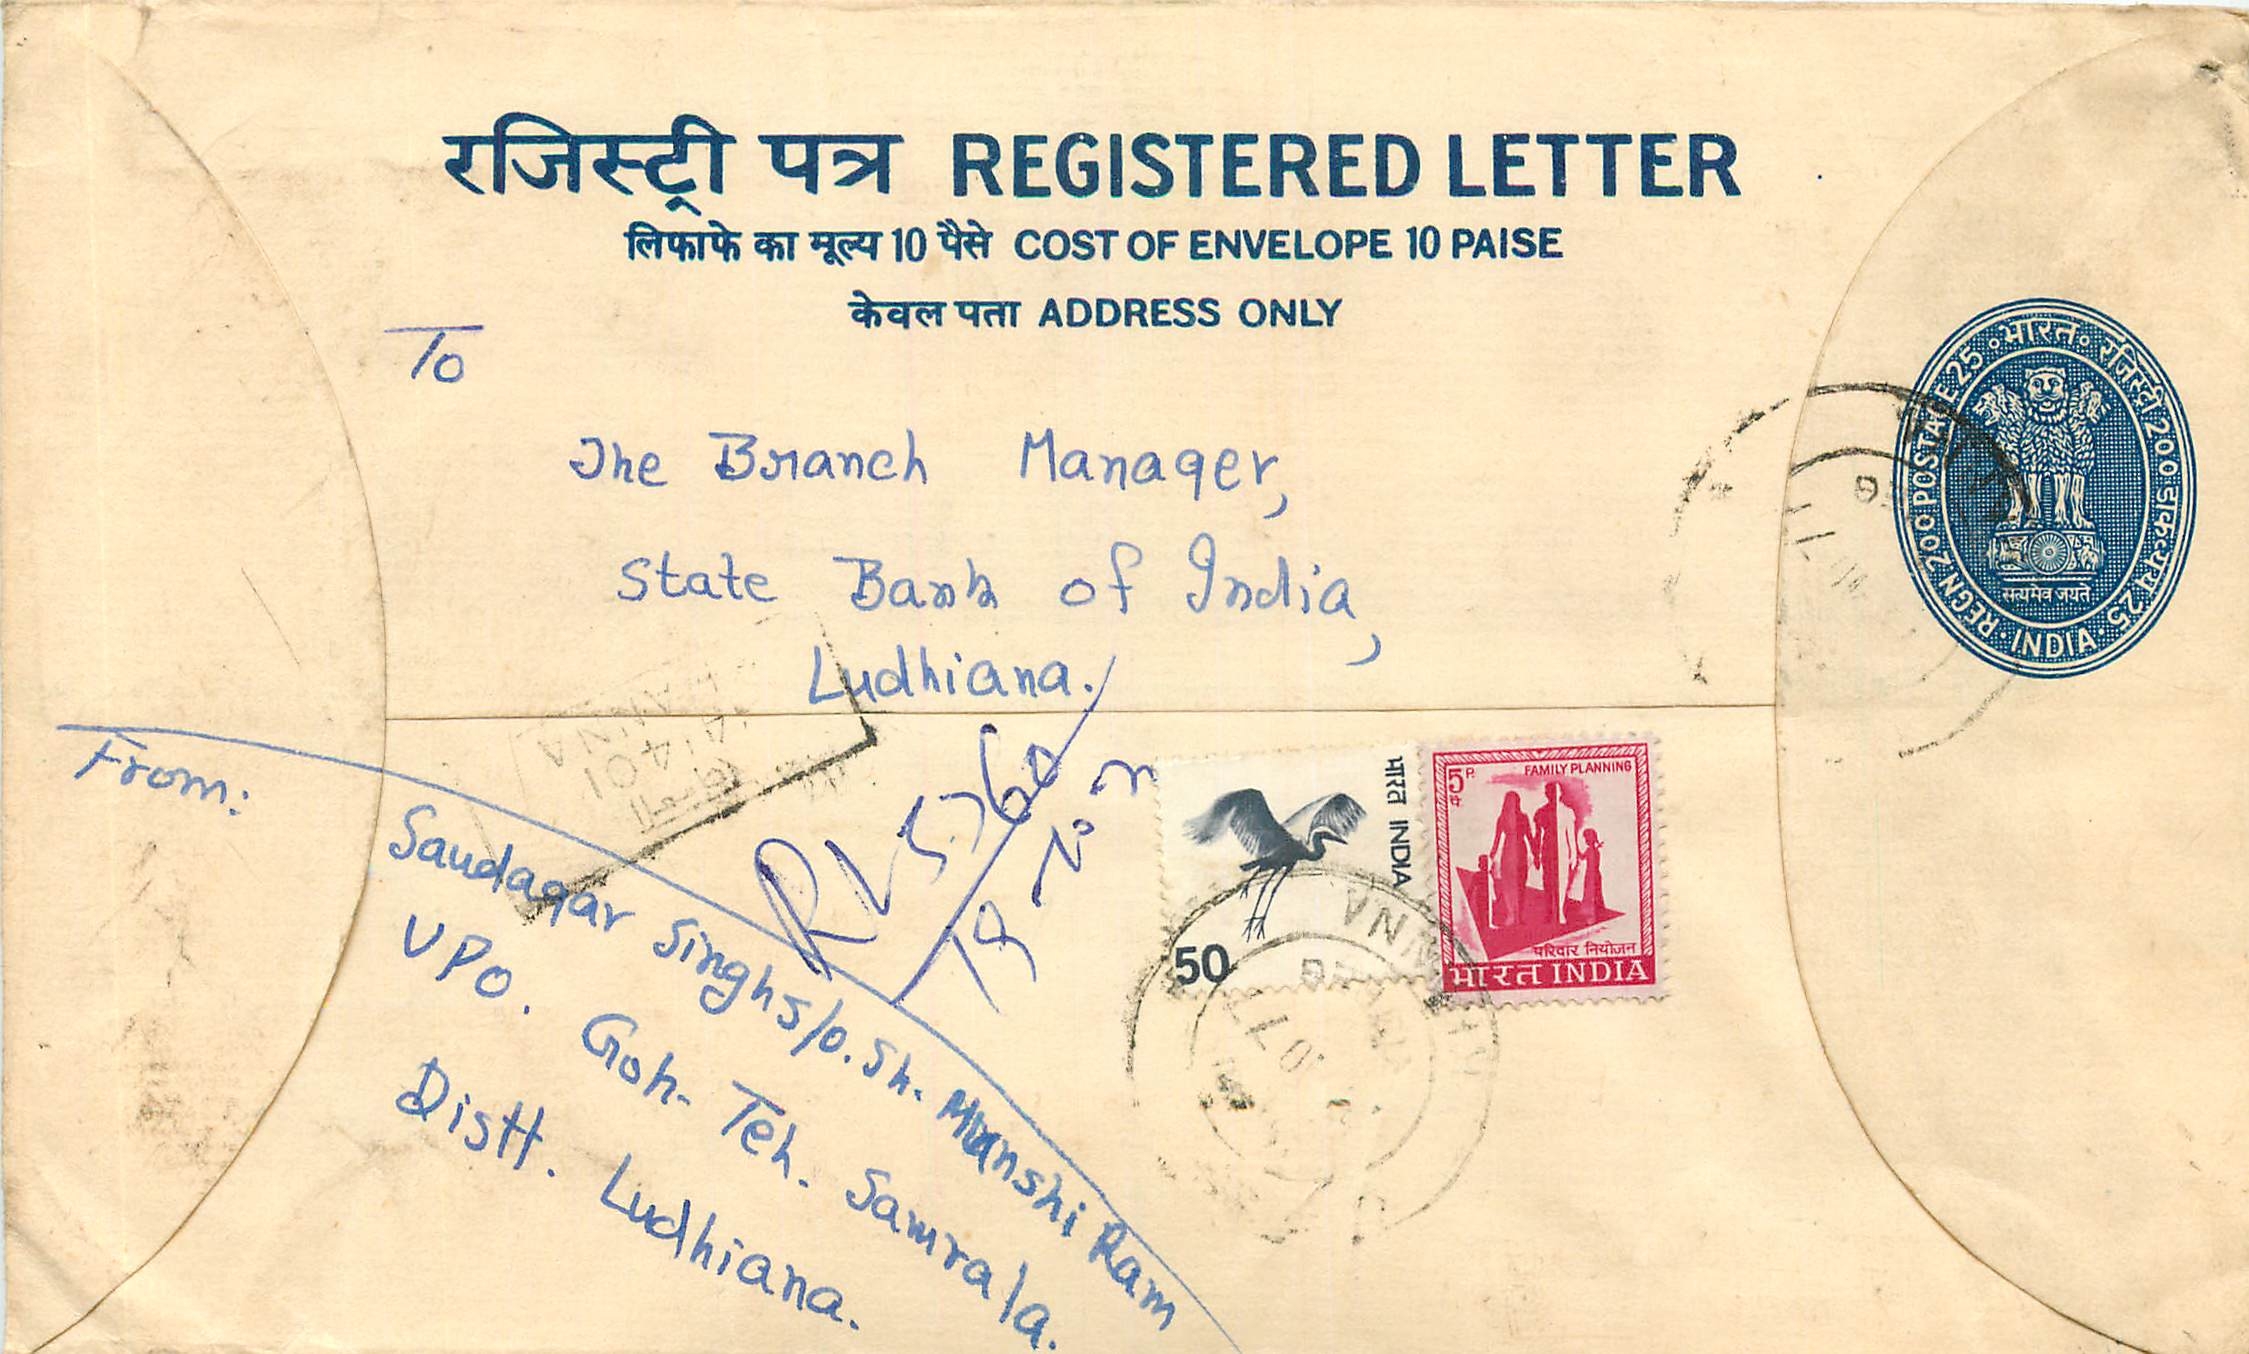 रजिस्ट्री पत्र REGISTERED LETTER
लिफाफे का मूल्य 10 पैसे COST OF ENVELOPE 10 PAISE
केवल पता ADDRESS ONLY
भारत रजिस्ट्री 200 डाकव्यय 25
REGN 200 POSTAGE 25
सत्यमेव जयते
INDIA
To
The Branch Manager,
State Bank of India,
Ludhiana.
141401
From:
Saudagar Singh s/o. Sh. Munshi Ram
VPO. Goh- Teh. Samrala.
Distt. Ludhiana.
भारत INDIA
50
5 P. पै
FAMILY PLANNING
परिवार नियोजन
भारत INDIA